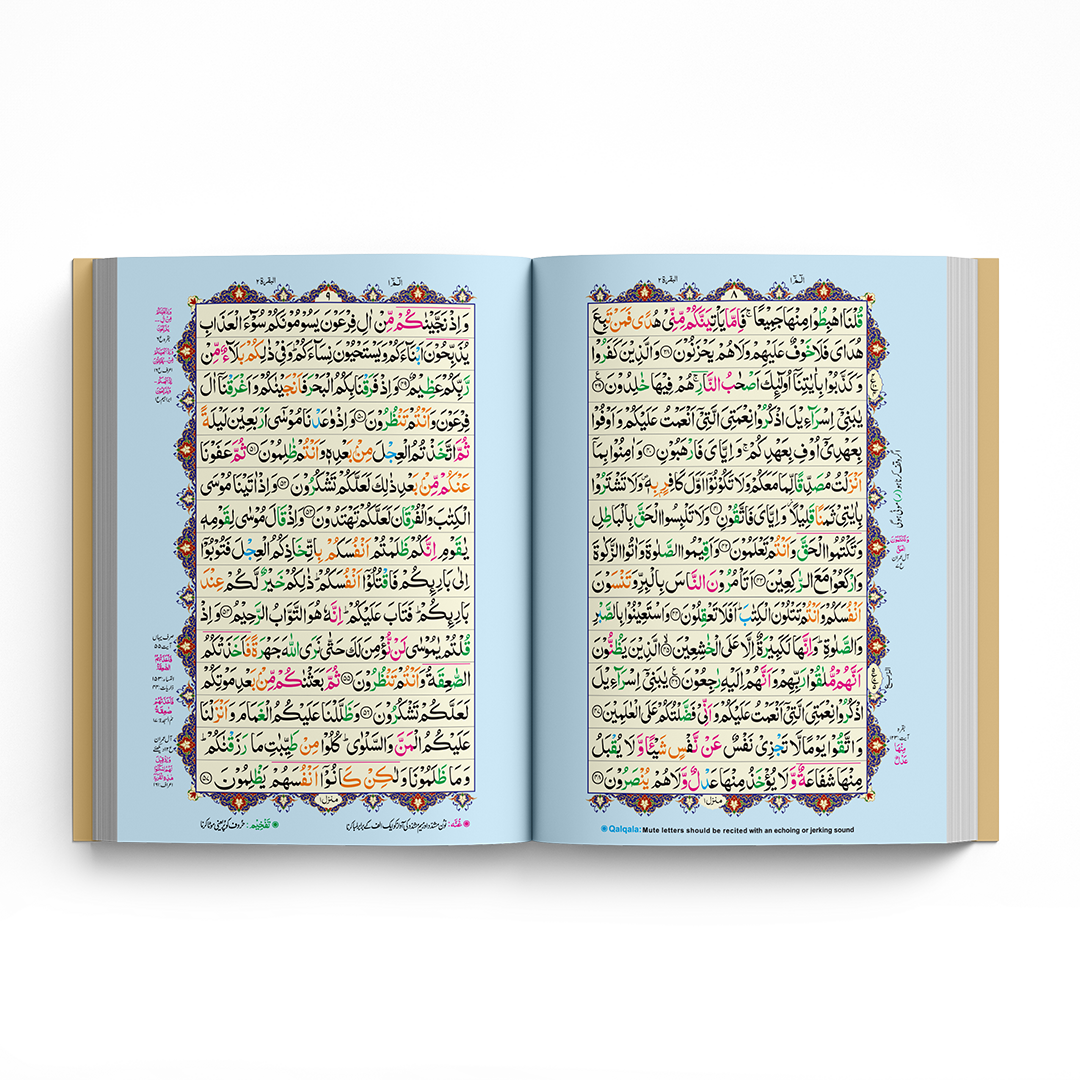 الٓمّٓ ١
البقرة ٢
٨
قُلْنَا اهْبِطُوْا مِنْهَا جَمِيْعًاۚ فَاِمَّا يَاْتِيَنَّكُمْ مِّنِّىْ هُدًى فَمَنْ تَبِعَ
هُدَاىَ فَلَا خَوْفٌ عَلَيْهِمْ وَلَا هُمْ يَحْزَنُوْنَ ۝٣٨ وَالَّذِيْنَ كَفَرُوْا
وَكَذَّبُوْا بِاٰيٰتِنَاۤ اُولٰٓئِكَ اَصْحٰبُ النَّارِۚ هُمْ فِيْهَا خٰلِدُوْنَ ۝٣٩
يٰبَنِىْۤ اِسْرَآءِيْلَ اذْكُرُوْا نِعْمَتِىَ الَّتِىْۤ اَنْعَمْتُ عَلَيْكُمْ وَاَوْفُوْا
بِعَهْدِىْۤ اُوْفِ بِعَهْدِكُمْۚ وَاِيَّاىَ فَارْهَبُوْنِ ۝٤٠ وَاٰمِنُوْا بِمَاۤ
اَنْزَلْتُ مُصَدِّقًا لِّمَا مَعَكُمْ وَلَا تَكُوْنُوْۤا اَوَّلَ كَافِرٍۭ بِهٖ۪ وَلَا تَشْتَرُوْا
بِاٰيٰتِىْ ثَمَنًا قَلِيْلًا وَّاِيَّاىَ فَاتَّقُوْنِ ۝٤١ وَلَا تَلْبِسُوا الْحَقَّ بِالْبَاطِلِ
وَتَكْتُمُوا الْحَقَّ وَاَنْتُمْ تَعْلَمُوْنَ ۝٤٢ وَاَقِيْمُوا الصَّلٰوةَ وَاٰتُوا الزَّكٰوةَ
وَارْكَعُوْا مَعَ الرّٰكِعِيْنَ ۝٤٣ اَتَاْمُرُوْنَ النَّاسَ بِالْبِرِّ وَتَنْسَوْنَ
اَنْفُسَكُمْ وَاَنْتُمْ تَتْلُوْنَ الْكِتٰبَؕ اَفَلَا تَعْقِلُوْنَ ۝٤٤ وَاسْتَعِيْنُوْا بِالصَّبْرِ
وَالصَّلٰوةِؕ وَاِنَّهَا لَكَبِيْرَةٌ اِلَّا عَلَى الْخٰشِعِيْنَ ۝٤٥ الَّذِيْنَ يَظُنُّوْنَ
اَنَّهُمْ مُّلٰقُوْا رَبِّهِمْ وَاَنَّهُمْ اِلَيْهِ رٰجِعُوْنَ ۝٤٦ يٰبَنِىْۤ اِسْرَآءِيْلَ
اذْكُرُوْا نِعْمَتِىَ الَّتِىْۤ اَنْعَمْتُ عَلَيْكُمْ وَاَنِّىْ فَضَّلْتُكُمْ عَلَى الْعٰلَمِيْنَ ۝٤٧
وَاتَّقُوْا يَوْمًا لَّا تَجْزِىْ نَفْسٌ عَنْ نَّفْسٍ شَيْـًٔا وَّلَا يُقْبَلُ
مِنْهَا شَفَاعَةٌ وَّلَا يُؤْخَذُ مِنْهَا عَدْلٌ وَّلَا هُمْ يُنْصَرُوْنَ ۝٤٨
منزل ١
Qalqala: Mute letters should be recited with an echoing or jerking sound
الٓمّٓ ١
البقرة ٢
٩
وَاِذْ نَجَّيْنٰكُمْ مِّنْ اٰلِ فِرْعَوْنَ يَسُوْمُوْنَكُمْ سُوْٓءَ الْعَذَابِ
يُذَبِّحُوْنَ اَبْنَآءَكُمْ وَيَسْتَحْيُوْنَ نِسَآءَكُمْؕ وَفِىْ ذٰلِكُمْ بَلَآءٌ مِّنْ
رَّبِّكُمْ عَظِيْمٌ ۝٤٩ وَاِذْ فَرَقْنَا بِكُمُ الْبَحْرَ فَاَنْجَيْنٰكُمْ وَاَغْرَقْنَاۤ اٰلَ
فِرْعَوْنَ وَاَنْتُمْ تَنْظُرُوْنَ ۝٥٠ وَاِذْ وٰعَدْنَا مُوْسٰۤى اَرْبَعِيْنَ لَيْلَةً
ثُمَّ اتَّخَذْتُمُ الْعِجْلَ مِنْۢ بَعْدِهٖ وَاَنْتُمْ ظٰلِمُوْنَ ۝٥١ ثُمَّ عَفَوْنَا
عَنْكُمْ مِّنْۢ بَعْدِ ذٰلِكَ لَعَلَّكُمْ تَشْكُرُوْنَ ۝٥٢ وَاِذْ اٰتَيْنَا مُوْسَى
الْكِتٰبَ وَالْفُرْقَانَ لَعَلَّكُمْ تَهْتَدُوْنَ ۝٥٣ وَاِذْ قَالَ مُوْسٰى لِقَوْمِهٖ
يٰقَوْمِ اِنَّكُمْ ظَلَمْتُمْ اَنْفُسَكُمْ بِاتِّخَاذِكُمُ الْعِجْلَ فَتُوْبُوْۤا
اِلٰى بَارِىِٕكُمْ فَاقْتُلُوْۤا اَنْفُسَكُمْؕ ذٰلِكُمْ خَيْرٌ لَّكُمْ عِنْدَ
بَارِىِٕكُمْؕ فَتَابَ عَلَيْكُمْؕ اِنَّهٗ هُوَ التَّوَّابُ الرَّحِيْمُ ۝٥٤ وَاِذْ
قُلْتُمْ يٰمُوْسٰى لَنْ نُّؤْمِنَ لَكَ حَتّٰى نَرَى اللّٰهَ جَهْرَةً فَاَخَذَتْكُمُ
الصّٰعِقَةُ وَاَنْتُمْ تَنْظُرُوْنَ ۝٥٥ ثُمَّ بَعَثْنٰكُمْ مِّنْۢ بَعْدِ مَوْتِكُمْ
لَعَلَّكُمْ تَشْكُرُوْنَ ۝٥٦ وَظَلَّلْنَا عَلَيْكُمُ الْغَمَامَ وَاَنْزَلْنَا
عَلَيْكُمُ الْمَنَّ وَالسَّلْوٰىؕ كُلُوْا مِنْ طَيِّبٰتِ مَا رَزَقْنٰكُمْؕ
وَمَا ظَلَمُوْنَا وَلٰكِنْ كَانُوْۤا اَنْفُسَهُمْ يَظْلِمُوْنَ ۝٥٧
منزل ١
غُنَّہ: نون مشدد اور میم مشدد کی آواز کو ایک الف کے برابر لمبا کرنا
تَفْخِیْم: حروف کو پُر یعنی موٹا کرنا